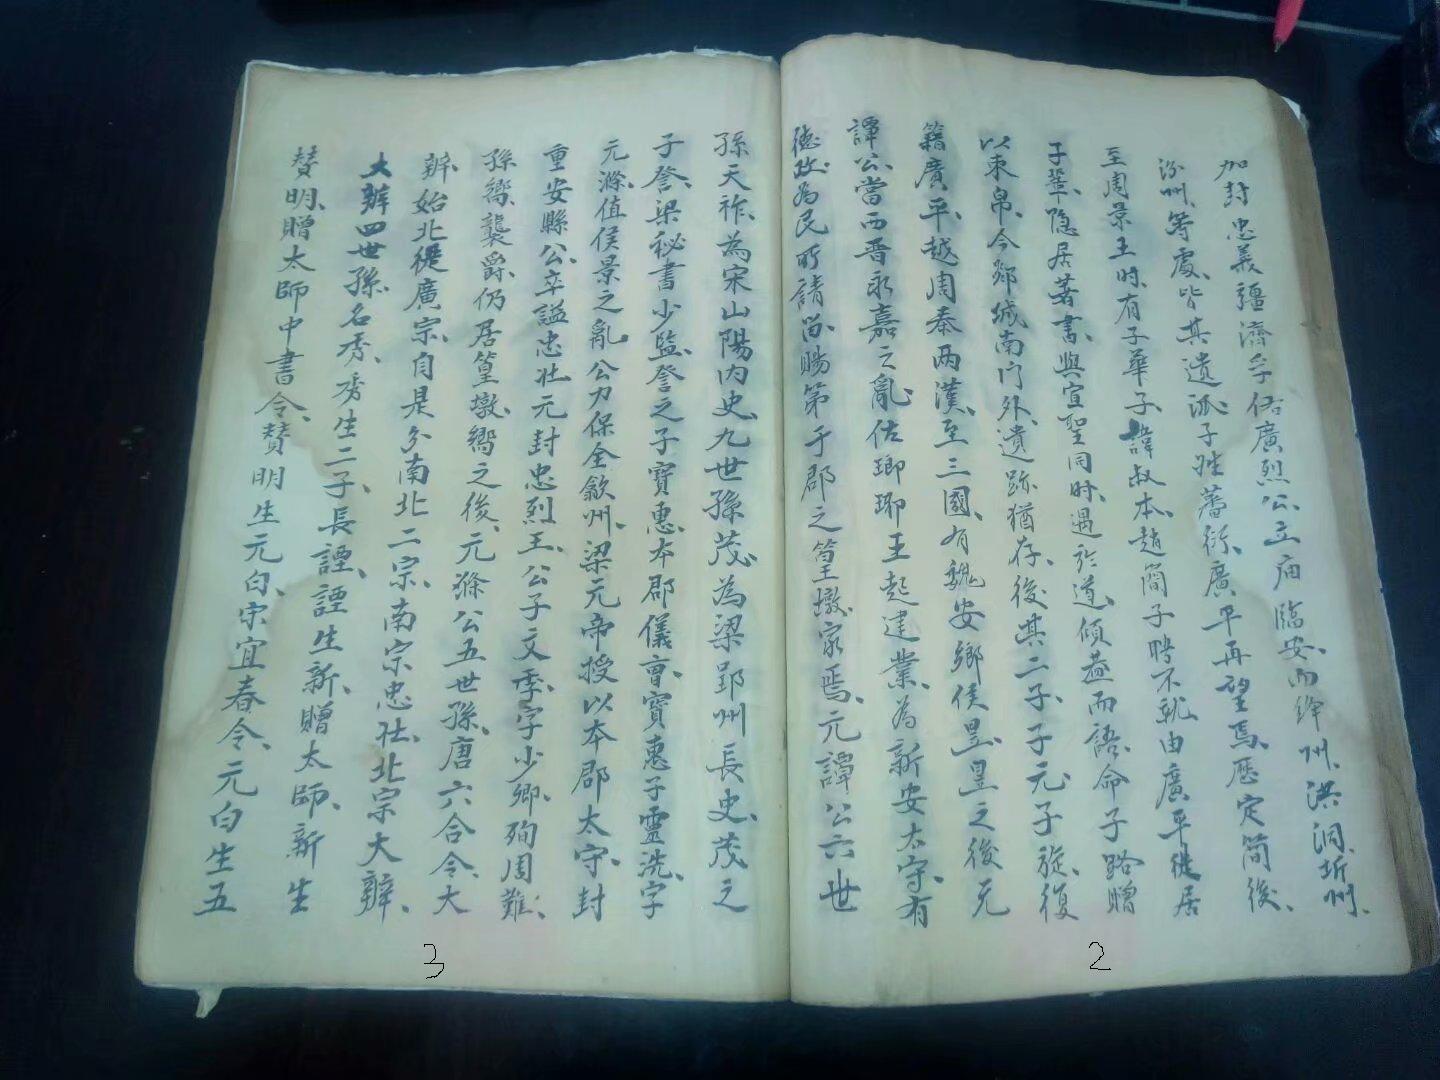 加封忠義彊濟孚佑廣烈公、立庙臨安、而絳州、洪洞、圻州、
汾州、等處、皆其遺派、子姓蕃衍、廣平再望焉、歷定简後、
至周景王时、有子華子、諱叔本、趙簡子聘不就、由廣平徙居
子華、隐居著書、與宣聖同时、遇於道、傾蓋而語、命子路贈
以束帛、今郯城南门外、遺跡猶存、後其二子、子元子旋、復
籍廣平、越周秦两漢、至三國、有魏安鄉侯昱、昱之後元
譚公、當西晋永嘉之亂、佐瑯琊王起建業、為新安太守、有
德政、為民所請留、賜第于郡之篁墩、家焉、元譚公六世
孫天祚、為宋山陽内史、九世孫茂、為梁郢州長史、茂之
子詧、梁秘書少監、詧之子寶惠、本郡儀曹、寶惠子靈洗、字
元滌、值侯景之亂、公力保全歙州、梁元帝授以本郡太守、封
重安縣公、卒謚忠壯、元封忠烈王、公子文季、字少卿、殉周難、
孫嚮、襲爵、仍居篁墩、嚮之後、元滌公五世孫、唐六合令、大
辨、始北徙廣宗、自是分南北二宗、南宗忠壯、北宗大辨、
大辨四世孫、名秀、秀生二子、長諲、諲生新、贈太師、新生
賛明、贈太師中書令、賛明生元白、宋宜春令、元白生五
2
3